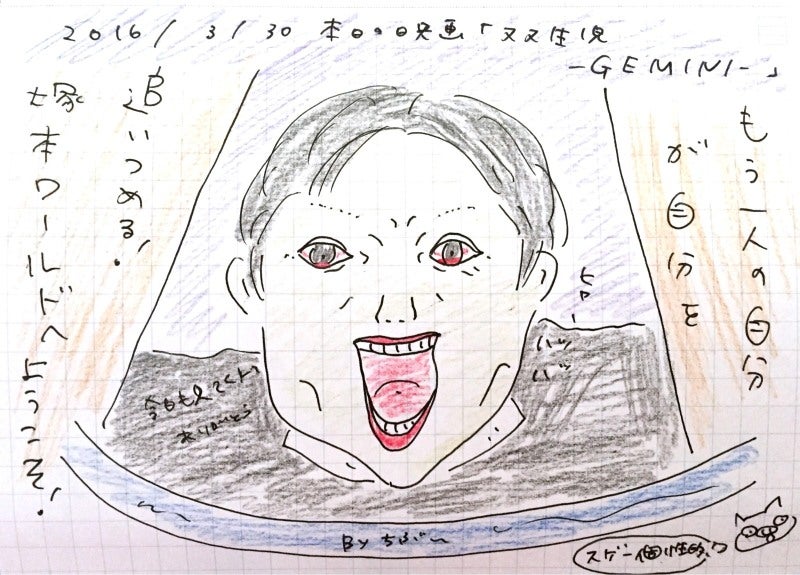 2016/3/30 本日の映画「双生児
-GEMINI-」
もう一人の自分
が自分を
追いつめる!
塚本ワールドへようこそ!
ヒャー
ハッ
ハッ
今日も見てくれて
ありがとう
By ちぷー
スゲー個性的!?